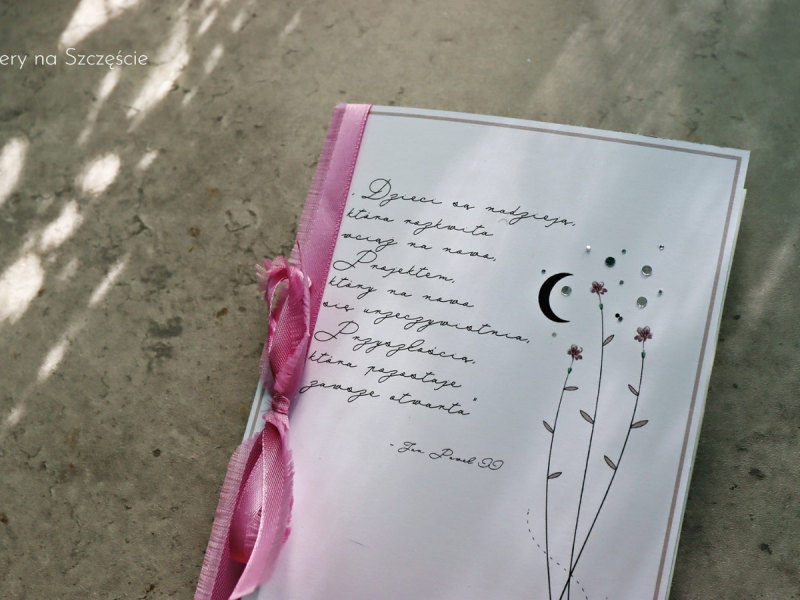 ery na Szczęście
"Dzieci są nadzieją,
która rozkwita
wciąż na nowo,
Projektem,
który na nowo
się urzeczywistnia,
Przyszłością,
która pozostaje
zawsze otwarta"
- Jan Paweł II